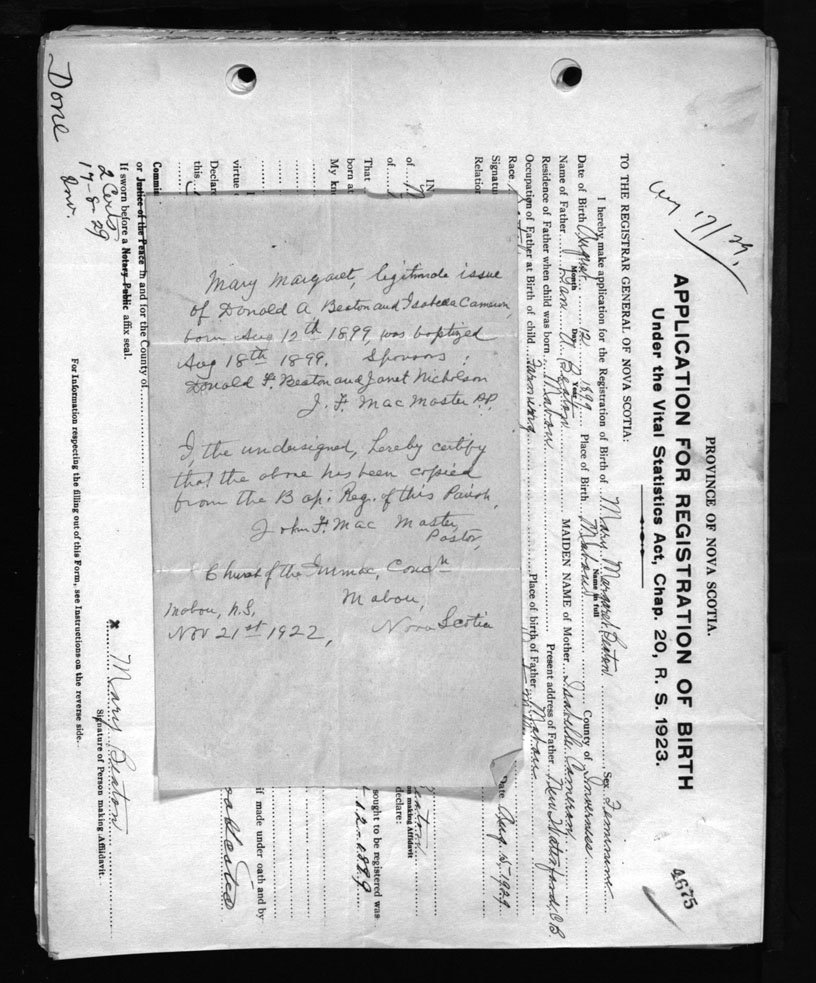 PROVINCE OF NOVA SCOTIA.
APPLICATION FOR REGISTRATION OF BIRTH
Under the Vital Statistics Act, Chap. 20, R. S. 1923.
4675
Aug 17/29.
TO THE REGISTRAR GENERAL OF NOVA SCOTIA:
I hereby make application for the Registration of Birth of Mary Margaret Beaton Sex Feminine
Name in full
Date of Birth August 12 1899 Place of Birth Mabou County of Inverness
Month Day Year
Name of Father Dan A Beaton MAIDEN NAME of Mother Isabelle Cameron
Residence of Father when child was born Mabou Present address of Father New Waterford, C.B.
Occupation of Father at Birth of child Farming Place of birth of Father Mabou
Race
Signatu
Date Aug. 15, 1929
Relation
IN
of
of
making Affidavit
declare:
That
sought to be registered was
born at
12-1899
My kno
virtue
if made under oath and by
Declare
this
Commis
or Justice of the Peace in and for the County of
If sworn before a Notary Public affix seal.
2 Certs
17-8-29
Inv.
Done
X Mary Beaton
Signature of Person making Affidavit.
For Information respecting the filling out of this Form, see Instructions on the reverse side.
Mary Margaret, legitimate issue
of Donald A Beaton and Isabella Cameron,
born Aug 12th 1899, was baptized
Aug 18th 1899. Sponsors:
Donald F. Beaton and Janet Nicholson
J. F. MacMaster P.P.
I, the undersigned, hereby certify
that the above has been copied
from the Bap: Reg. of this Parish,
John F. MacMaster,
Pastor,
Church of the Immac, Concn
Mabou,
Mabou, N.S, Nova Scotia
Nov 21st 1922,